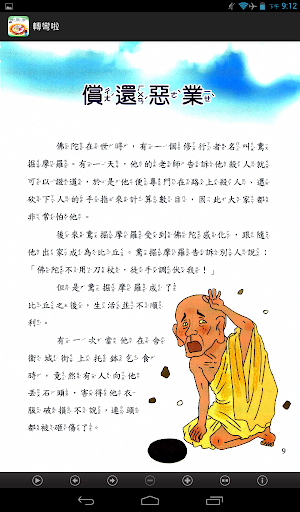 下午 9:12
轉彎啦
償還惡業
佛陀在世時，有一個修行者名叫鴦
掘摩羅。有一天，他的老師告訴他殺人就
可以證道，於是他便專門在路上殺人、還
砍下人的手指來計算數目，因此大家都
非常怕他。
後來鴦掘摩羅受到佛陀感化，跟隨
他出家成為比丘。鴦掘摩羅告訴別人說：
「佛陀不用刀杖，徒手調伏我！」
但是鴦掘摩羅成了
比丘之後，生活並不順
利。
有一次當他在舍
衛城街上托缽乞食
時，竟然有人向他
丟石頭，害得他衣
服破損不說，連頭
都被砸傷了。
9